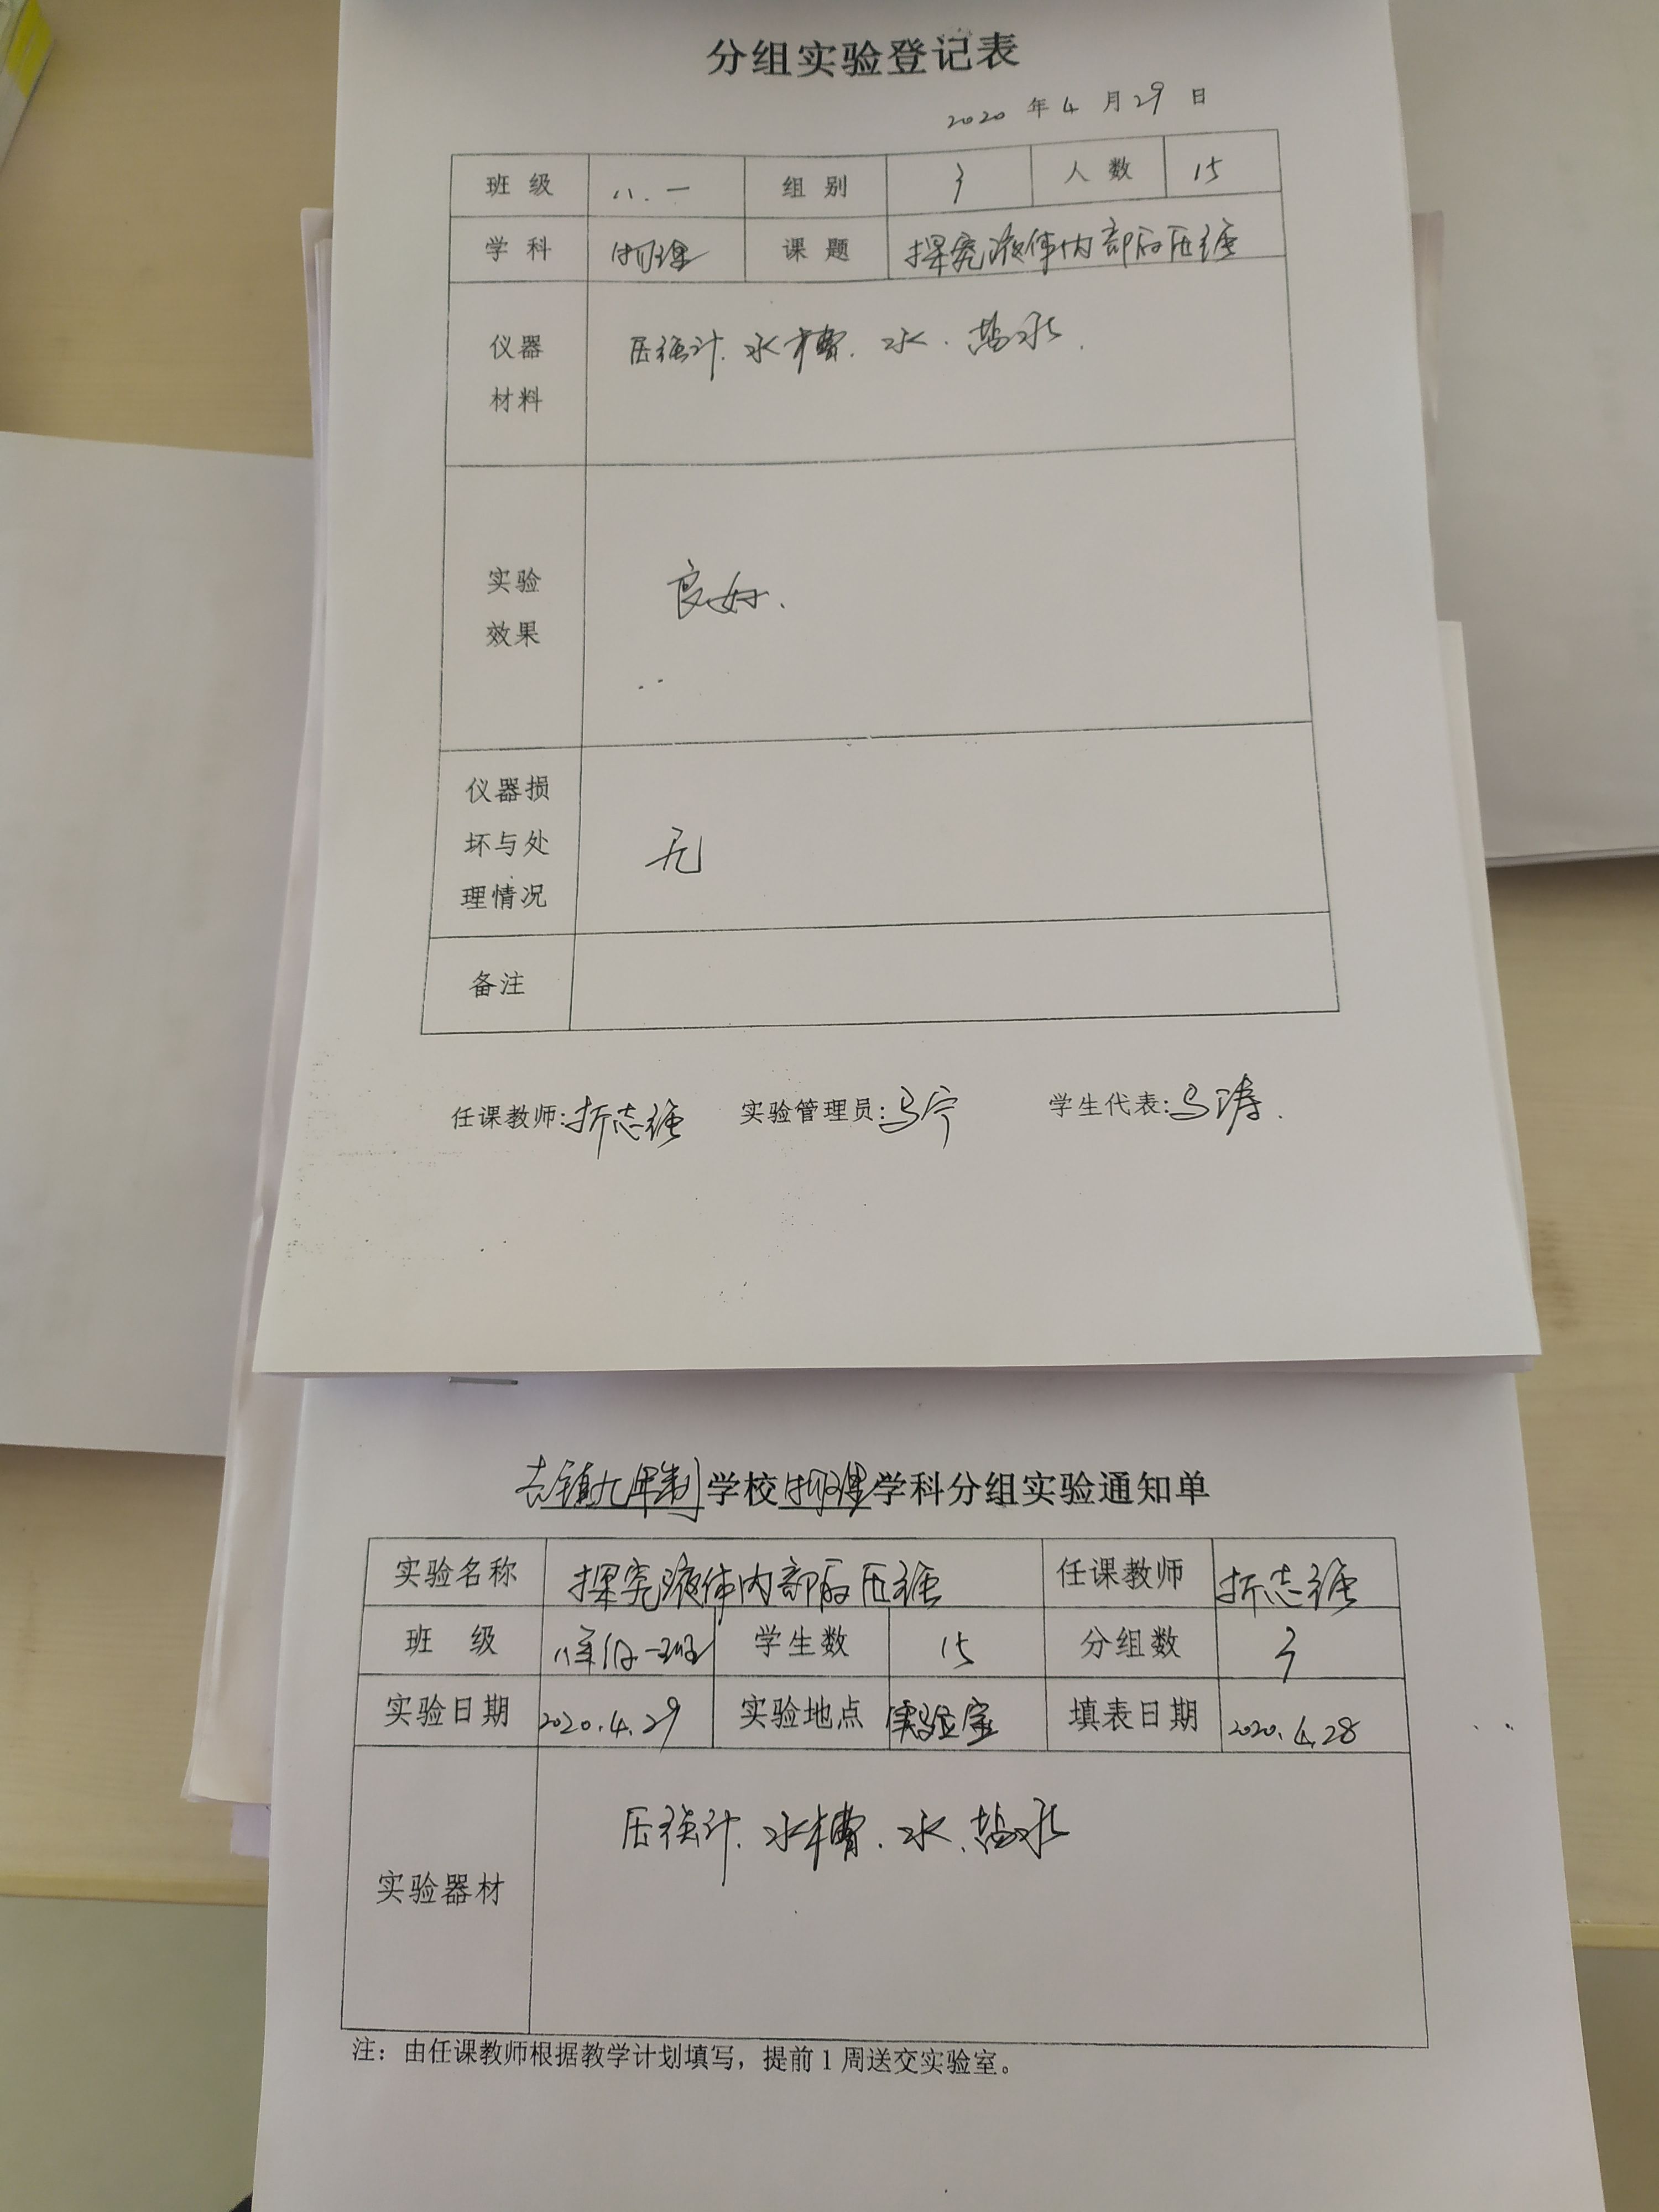 分组实验登记表
2020 年 4 月 29 日
班 级 八.一 组 别 3 人 数 15
学 科 物理 课 题 探究液体内部的压强
仪器材料 压强计.水槽.水.盐水.
实验效果 良好.
仪器损坏与处理情况 无
备注
任课教师:折志强 实验管理员:马宁 学生代表:马涛.
镇九年制学校物理学科分组实验通知单
实验名称 探究液体内部的压强 任课教师 折志强
班 级 八年级一班 学生数 15 分组数 3
实验日期 2020.4.29 实验地点 实验室 填表日期 2020.4.28
实验器材 压强计.水槽.水.盐水
注：由任课教师根据教学计划填写，提前1周送交实验室。